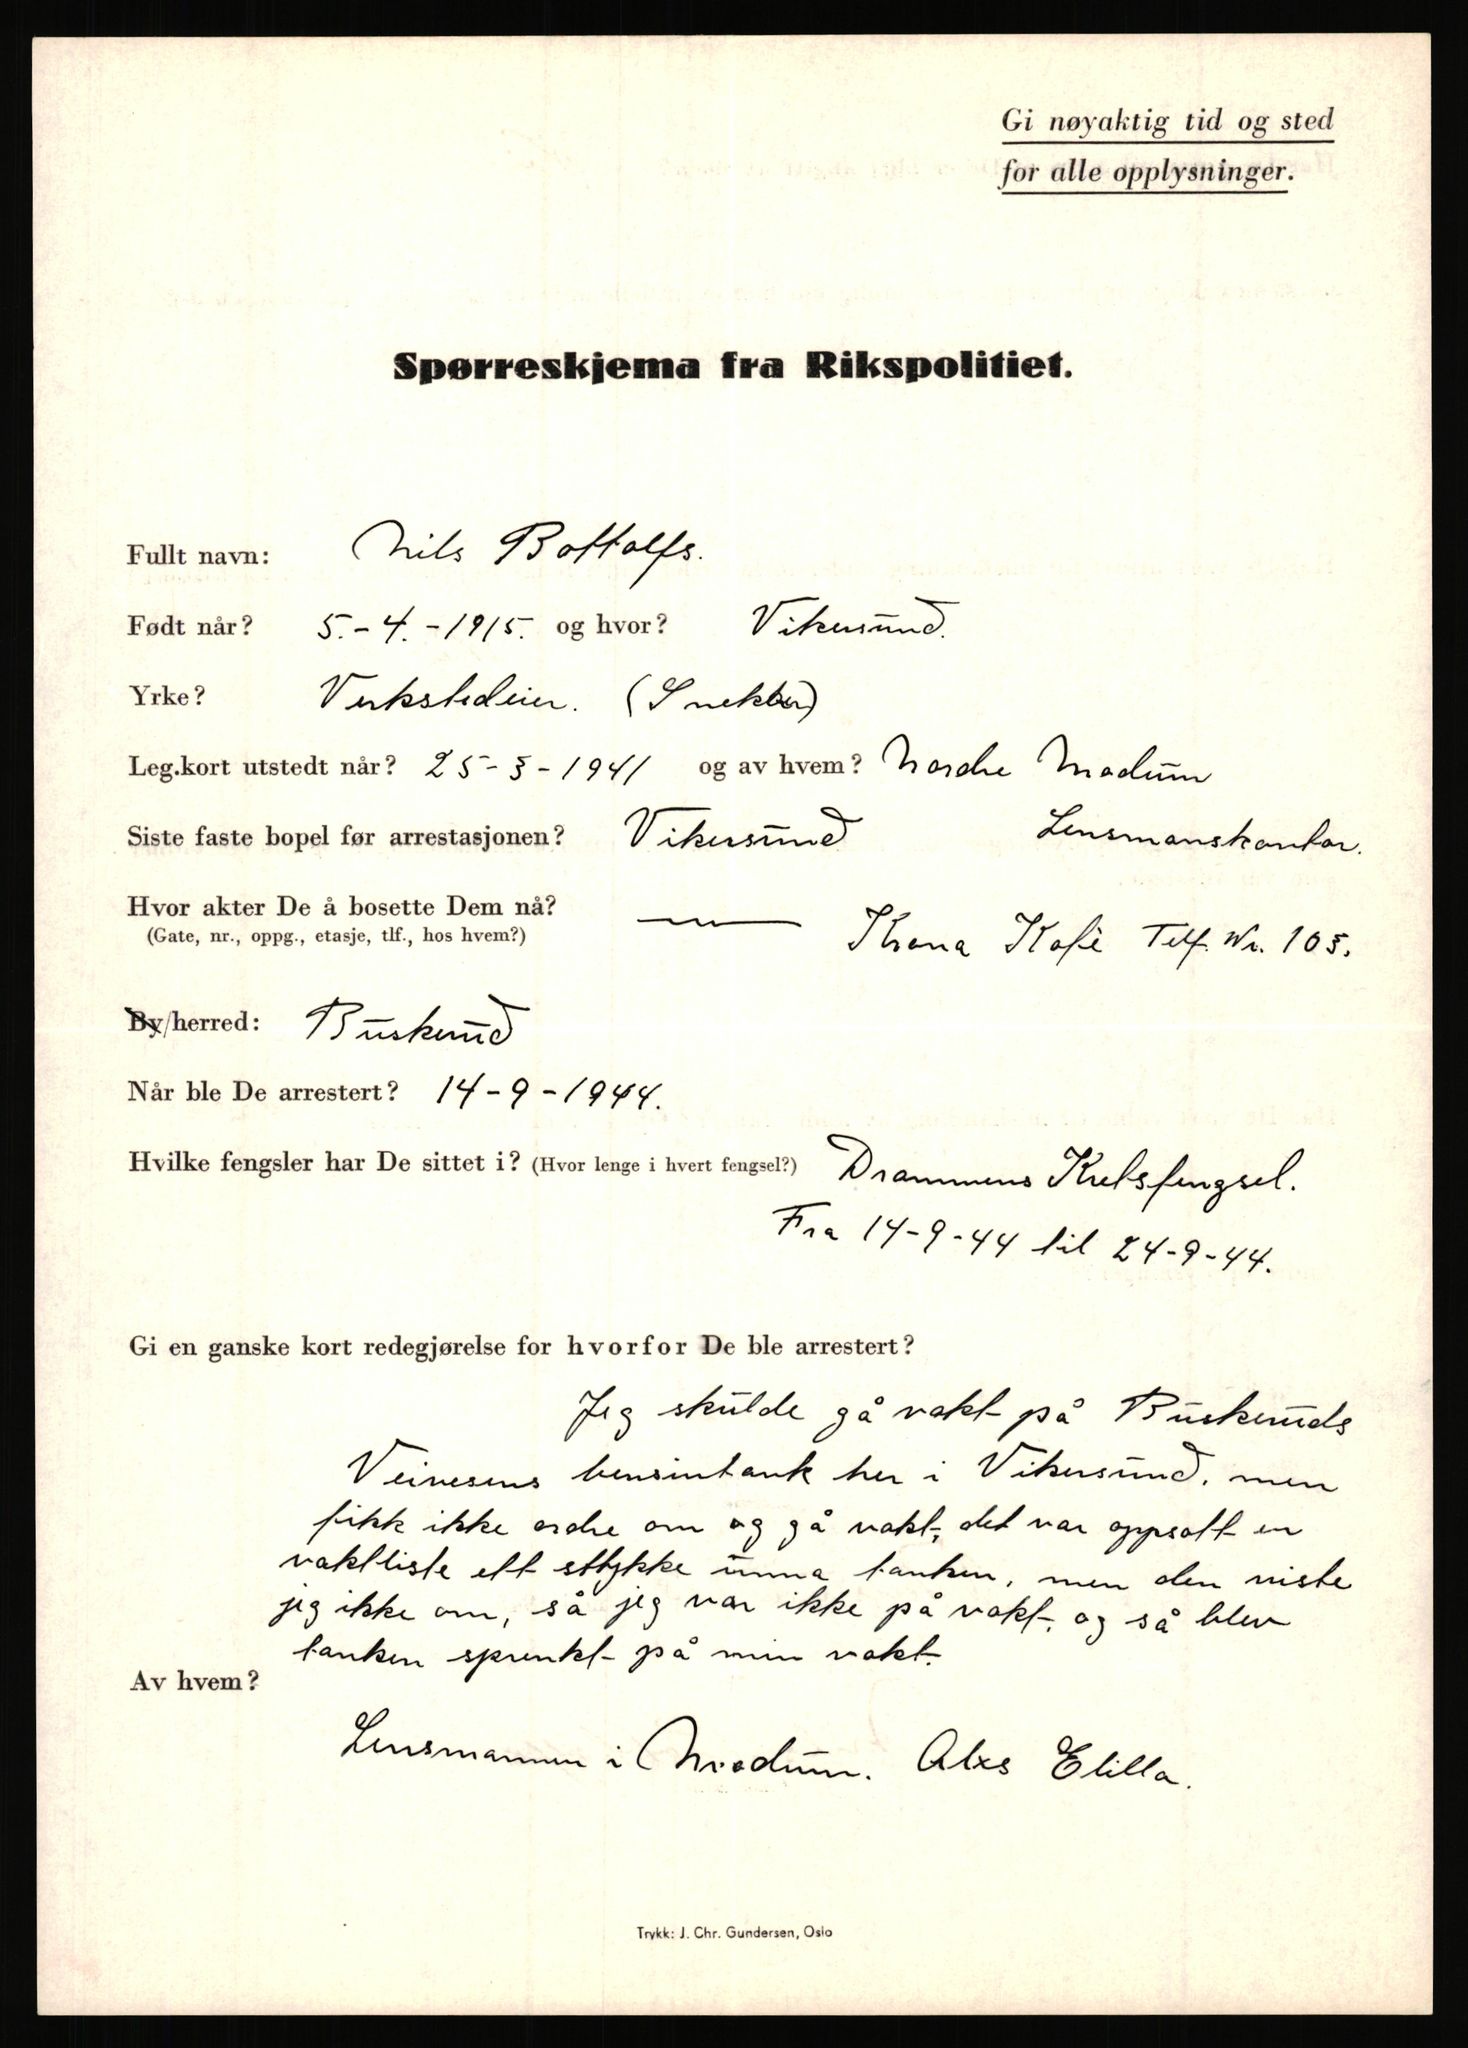 Gi nøyaktig tid og sted
for alle opplysninger.
Spørreskjema fra Rikspolitiet.
Fullt navn: Nils Bottolfs.
Født når? 5.-4.-1915. og hvor? Vikersund.
Yrke? Verkstedeier. (Snekker)
Leg.kort utstedt når? 25-3-1941 og av hvem? Nordre Modum
Siste faste bopel før arrestasjonen? Vikersund Lensmanskontor.
Hvor akter De å bosette Dem nå? —"—
(Gate, nr., oppg., etasje, tlf., hos hvem?) Krona Kafè Telf. Nr. 103.
By/herred: Buskerud
Når ble De arrestert? 14-9-1944.
Hvilke fengsler har De sittet i? (Hvor lenge i hvert fengsel?) Drammens Kretsfengsel.
Fra 14-9-44 til 24-9-44.
Gi en ganske kort redegjørelse for hvorfor De ble arrestert?
Jeg skulde gå vakt på Buskeruds
Veivesens bensintank her i Vikersund. men
fikk ikke ordre om og gå vakt, det var oppsatt en
vaktliste ett stykke unna tanken, men den viste
jeg ikke om, så jeg var ikke på vakt, og så blev
tanken sprenkt på min vakt.
Av hvem?
Lensmannen i Modum.
Trykk: J. Chr. Gundersen, Oslo